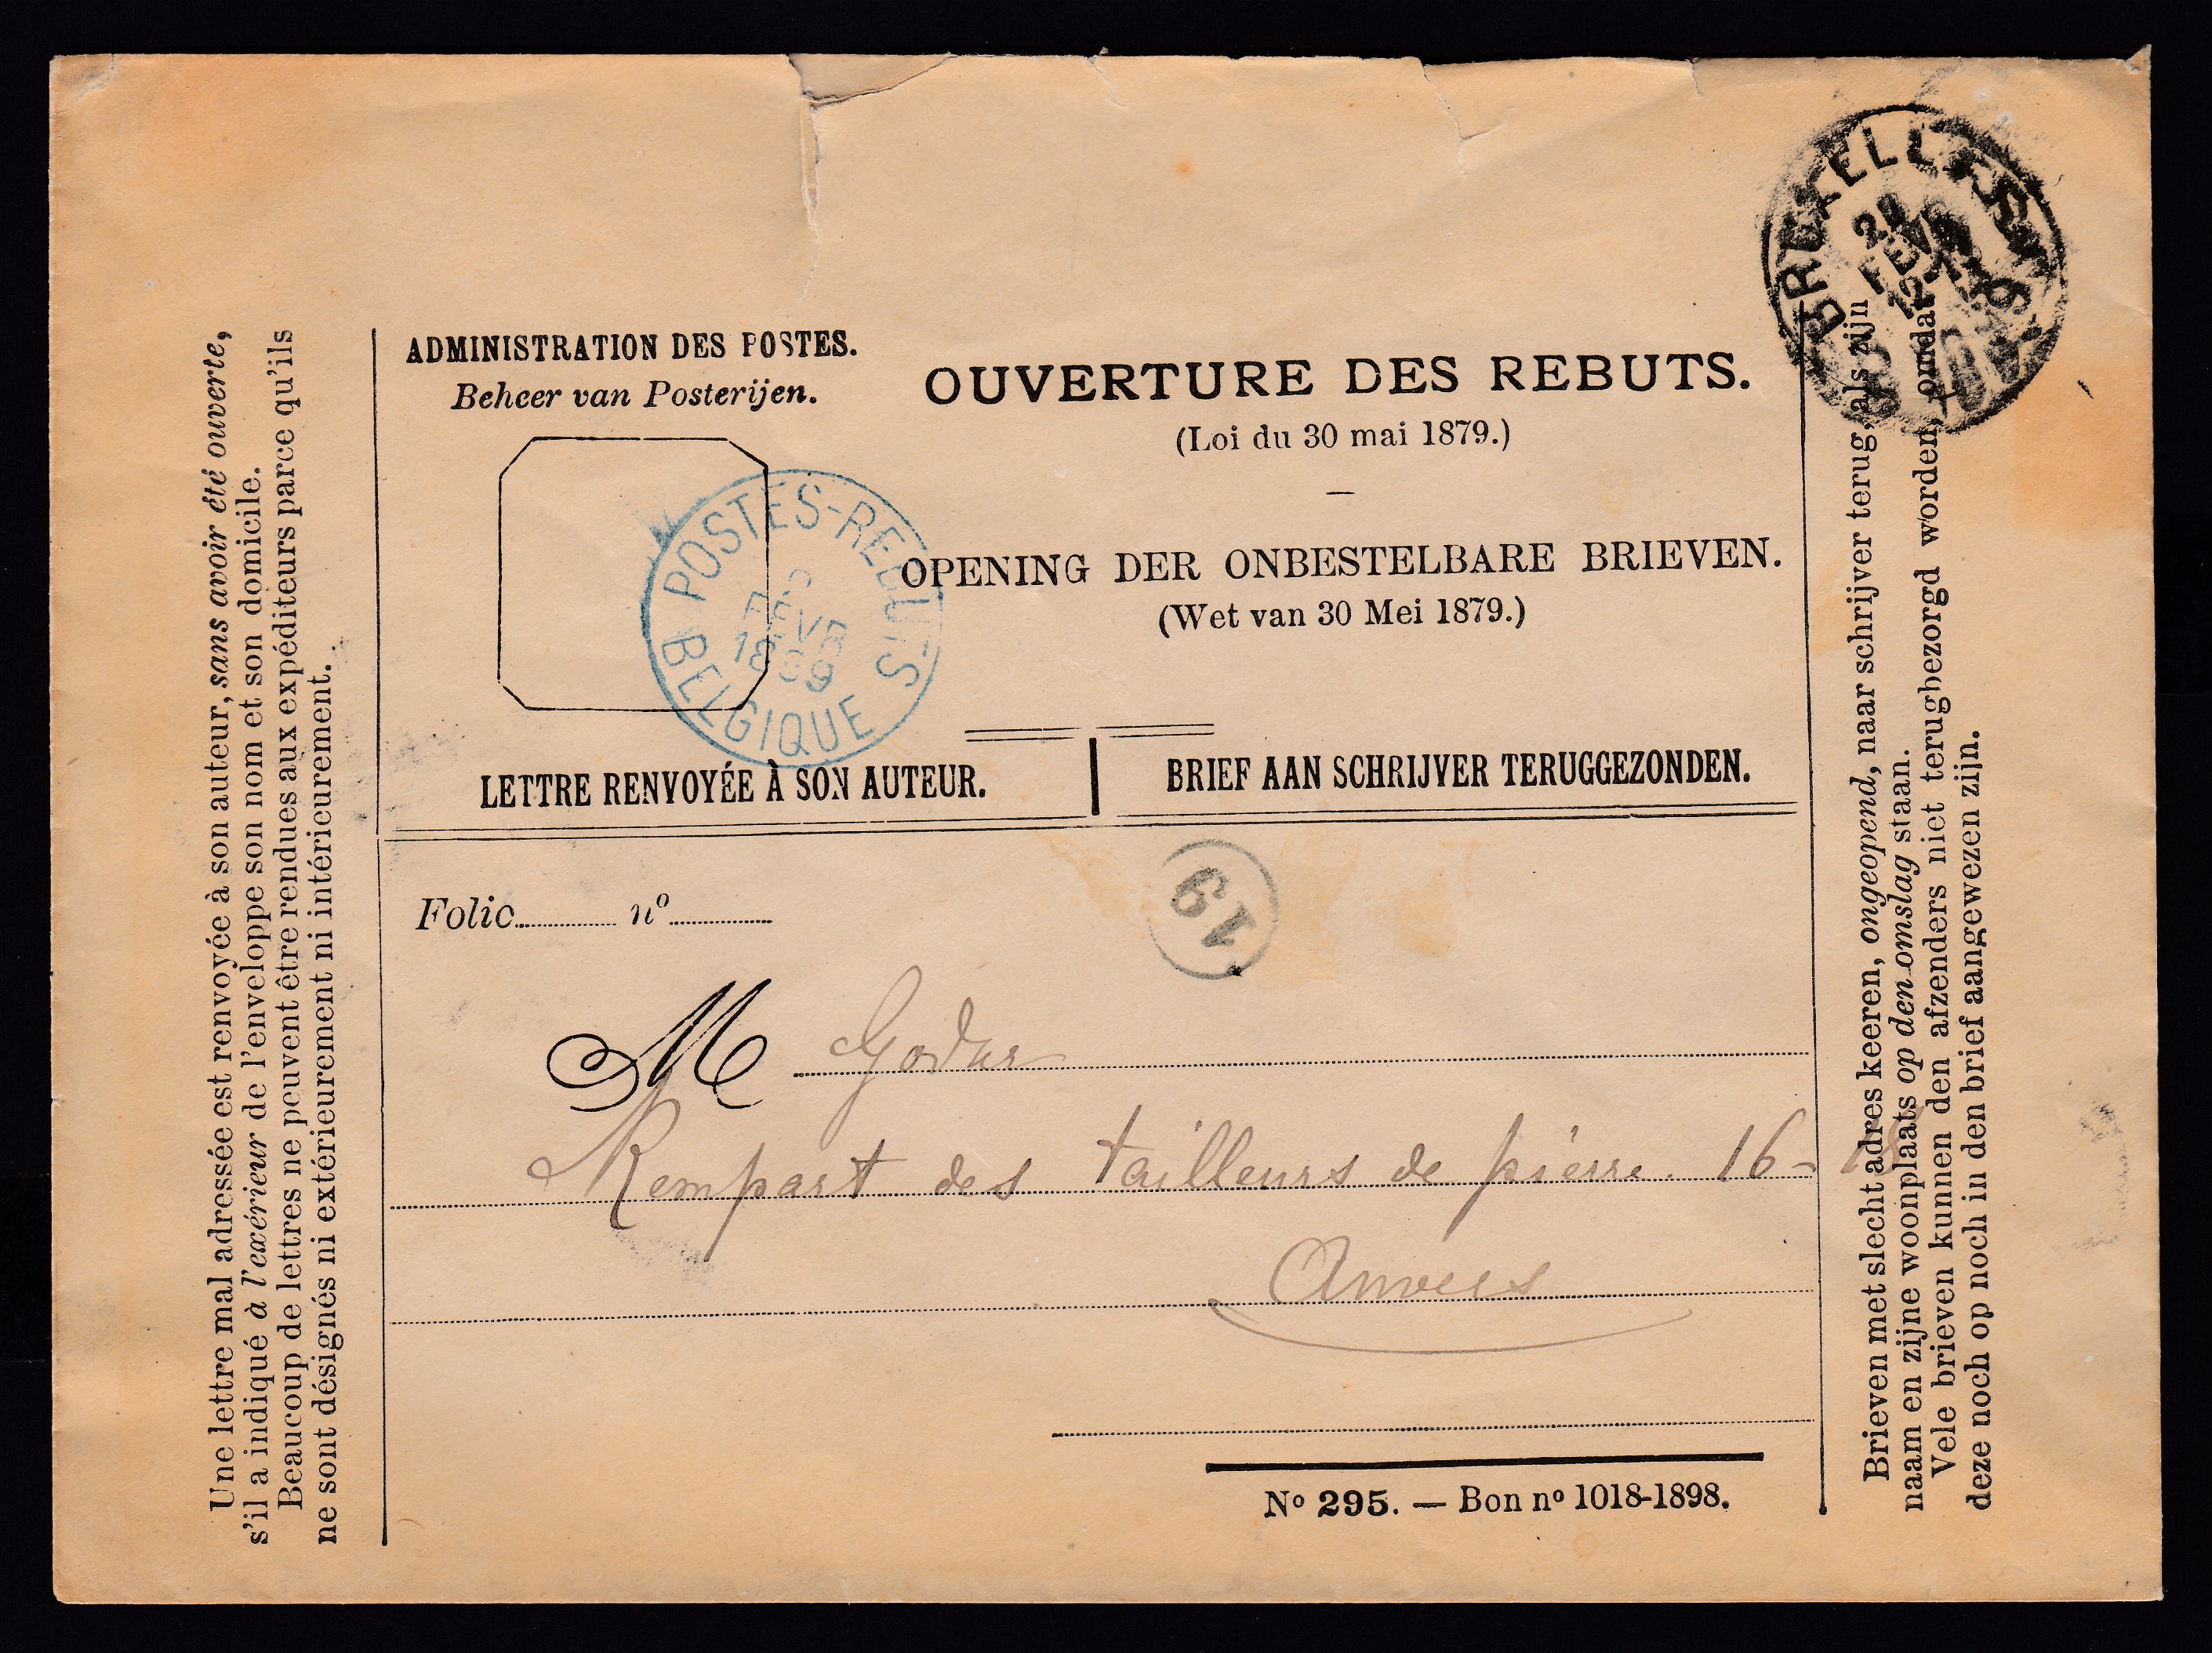 Une lettre mal adressée est renvoyée à son auteur, sans avoir été ouverte,
s'il a indiqué à l'exérieur de l'enveloppe son nom et son domicile.
Beaucoup de lettres ne peuvent être rendues aux expéditeurs parce qu'ils
ne sont désignés ni extérieurement ni intérieurement.
ADMINISTRATION DES POSTES.
Beheer van Posterijen.
OUVERTURE DES REBUTS.
(Loi du 30 mai 1879.)
OPENING DER ONBESTELBARE BRIEVEN.
(Wet van 30 Mei 1879.)
POSTES-REBUTS
FEVR
1899
BELGIQUE
BRUXELLES
FEVR
LETTRE RENVOYÉE À SON AUTEUR.
BRIEF AAN SCHRIJVER TERUGGEZONDEN.
19
Folio nº
M
Rempart des tailleurs de pierre. 16-
Anvers
Nº 295. — Bon nº 1018-1898.
Brieven met slecht adres keeren, ongeopend, naar schrijver terug, als zijn
naam en zijne woonplaats op den omslag staan.
Vele brieven kunnen den afzenders niet terugbezorgd worden, omdat
deze noch op noch in den brief aangewezen zijn.